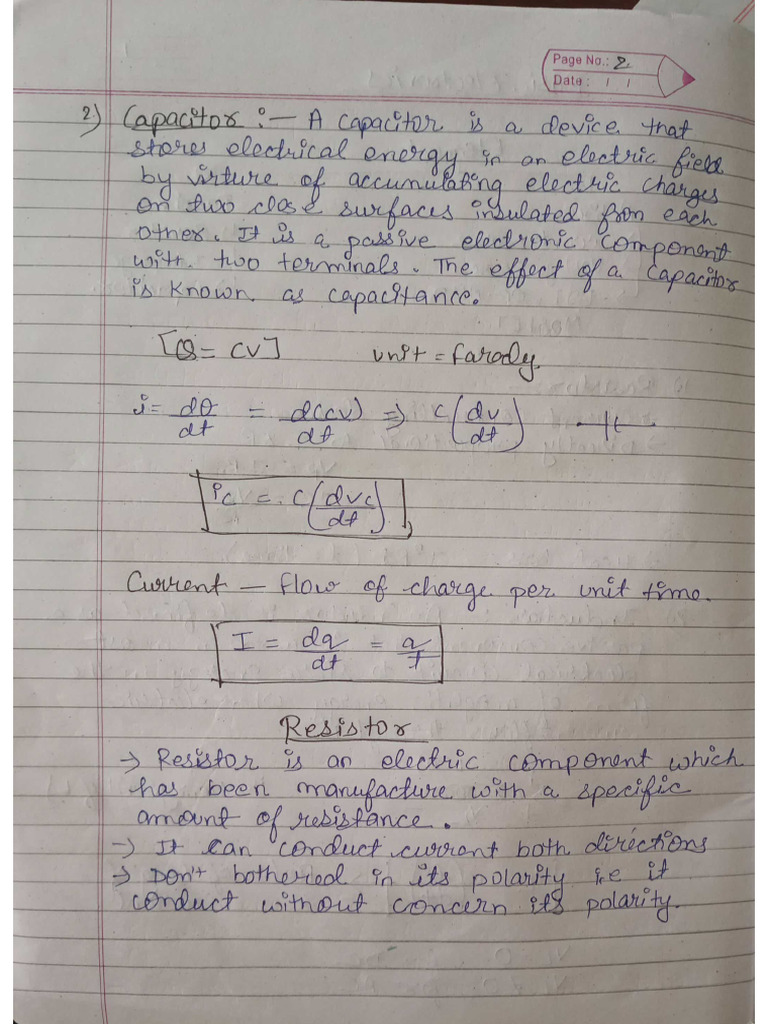 Page No.: 2
Date : / /
2) Capacitor :- A capacitor is a device that
stores electrical energy in an electric field
by virture of accumulating electric charges
on two close surfaces insulated from each
other. It is a passive electronic component
with two terminals. The effect of a capacitor
is known as capacitance.
[Q = CV] unit = farady.
i = dθ/dt = d(cv)/dt ⇒ c(dv/dt)
ic = c(dvc/dt)
Current — flow of charge per unit time.
I = dq/dt = q/t
Resistor
→ Resistor is an electric component which
has been manufacture with a specific
amount of resistance.
→ It can conduct current both directions
→ Don't botheried in its polarity i.e it
conduct without concern its polarity.